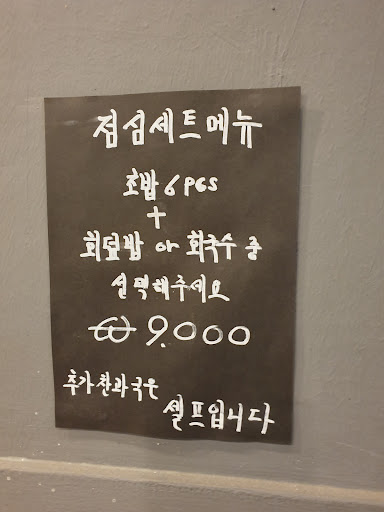 점심세트메뉴
초밥 6 pcs
+
회덮밥 or 회국수 중
선택해주세요
₩ 9.000
추가찬과국은
셀프입니다